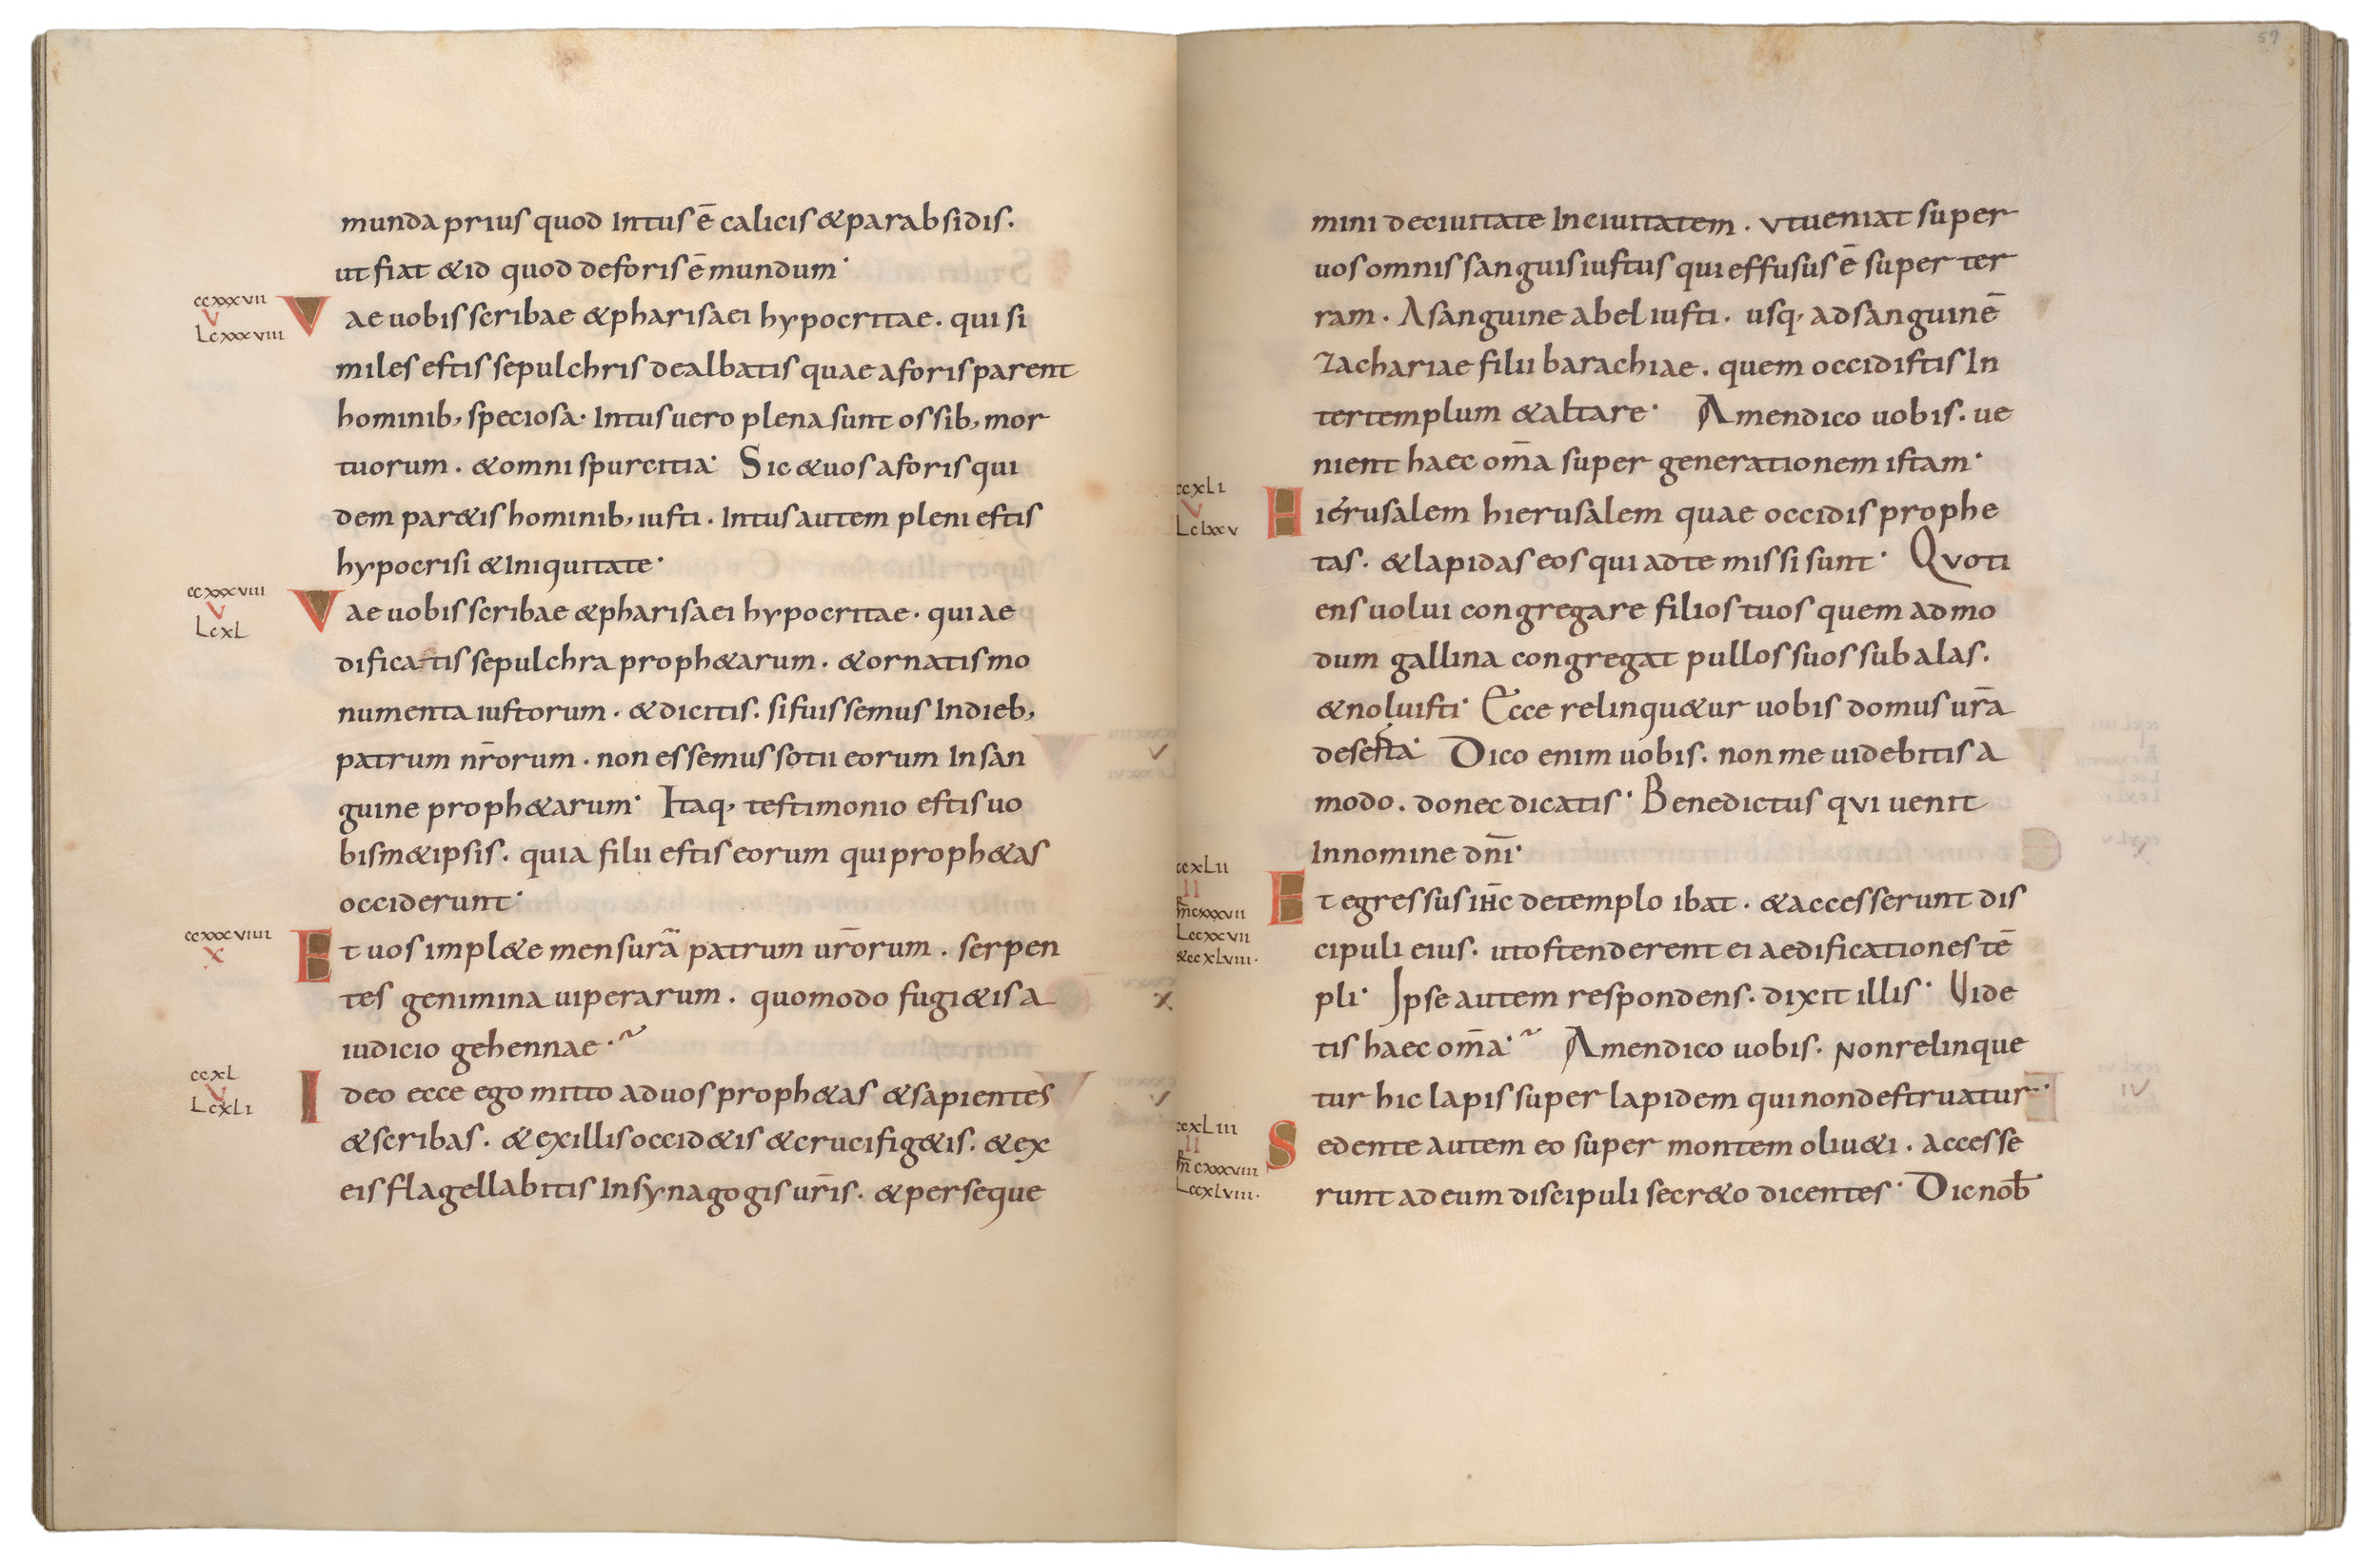 munda prius quod Intus ē calicis & parabsidis.
ut fiat & id quod deforis ē mundum·
ccxxxvii
V
Lcxxxviii
Vae uobis scribae & pharisaei hypocritae. qui si
miles estis sepulchris dealbatis quae aforis parent
hominib, speciosa· Intus uero plena sunt ossib, mor
tuorum. & omni spurcitia· Sic & uos aforis qui
dem par&is hominib, iusti. Intus autem pleni estis
hypocrisi & Iniquitate·
ccxxxviii
V
Lcxl
Vae uobis scribae & pharisaei hypocritae. qui ae
dificatis sepulchra proph&arum. & ornatis mo
numenta iustorum. & dicitis. si fuissemus Indieb,
patrum nr̄orum. non essemus sotii eorum In san
guine proph&arum· Itaq, testimonio estis uo
bism&ipsis. quia filii estis eorum qui proph&as
occiderunt·
ccxxxviiii
X
Et uos impl&e mensurā patrum ur̄orum. serpen
tes genimina uiperarum. quomodo fugi&is a
iudicio gehennae·~
ccxl
V
Lcxli
Ideo ecce ego mitto ad uos proph&as & sapientes
& scribas. & ex illis occid&is & crucifig&is. & ex
eis flagellabitis In synagogis ur̄is. & perseque
57
mini de ciuitate In ciuitatem. ut ueniat super
uos omnis sanguis iustus qui effusus ē super ter
ram. A sanguine abel iusti. usq, ad sanguinē
Zachariae filii barachiae. quem occidistis In
ter templum & altare· Amen dico uobis. ue
nient haec om̄a super generationem istam·
ccxli
V
Lclxxv
Hierusalem hierusalem quae occidis prophe
tas. & lapidas eos qui ad te missi sunt· Quoti
ens uolui congregare filios tuos quem ad mo
dum gallina congregat pullos suos sub alas.
& noluisti· Ecce relinqu&ur uobis domus ur̄a
deserta· Dico enim uobis. non me uidebitis a
modo. donec dicatis· Benedictus qui uenit
In nomine dn̄i·
ccxlii
II
mr̄cxxxvii
Lccxxvii
&ccxlviii·
Et egressus ih̄c de templo ibat. & accesserunt dis
cipuli eius. ut ostenderent ei aedificationes tē
pli· Ipse autem respondens. dixit illis· Uide
tis haec om̄a·~ Amen dico uobis. Non relinque
tur hic lapis super lapidem qui non destruatur·
ccxliii
II
mr̄cxxxviii
Lccxlviii·
Sedente autem eo super montem oliu&i. accesse
runt ad eum discipuli secr&o dicentes· Dic nob̄